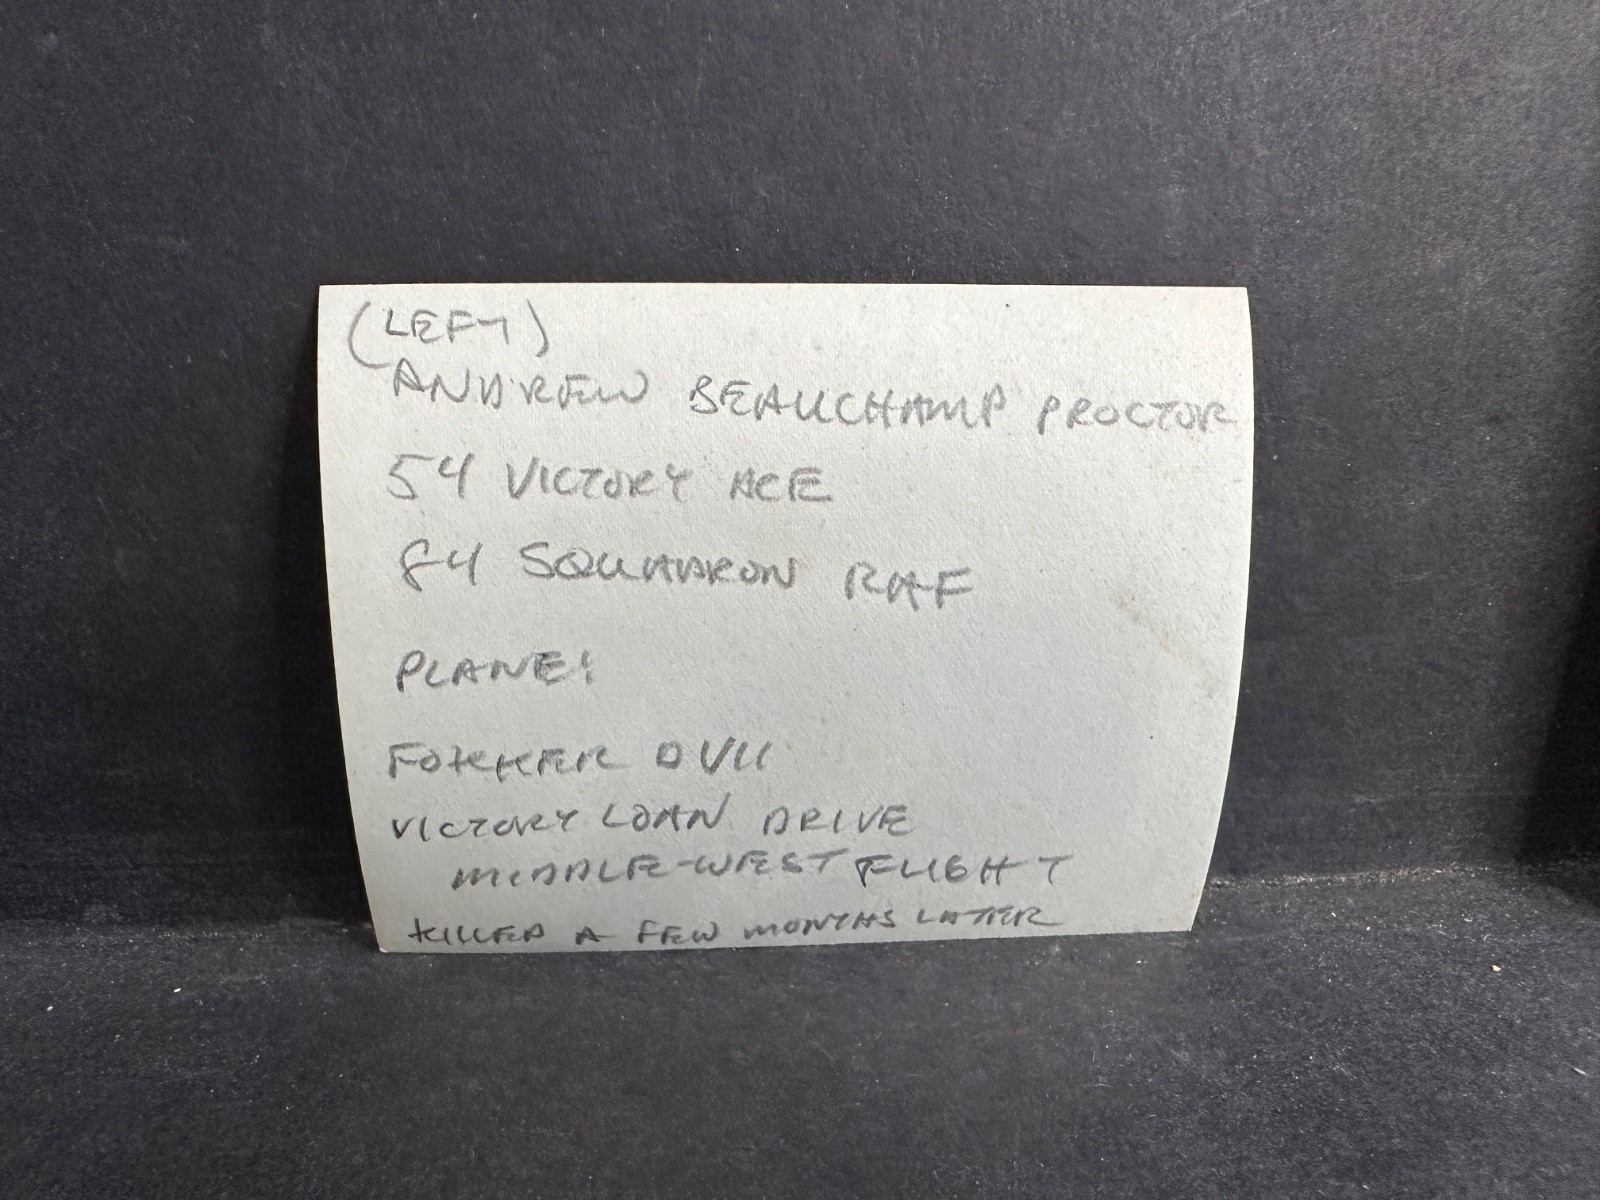 (LEFT)
ANDREW BEAUCHAMP PROCTOR
54 VICTORY ACE
84 SQUADRON RAF
PLANE:
FOKKER DVII
VICTORY LOAN DRIVE
MIDDLE-WEST FLIGHT
KILLED A FEW MONTHS LATER